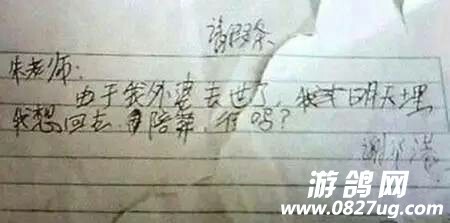 请假条
朱老师:
由于我外婆去世了,我 明天埋
我想回去 陪葬,行吗?
谢
游鸽网
www.0827ug.com